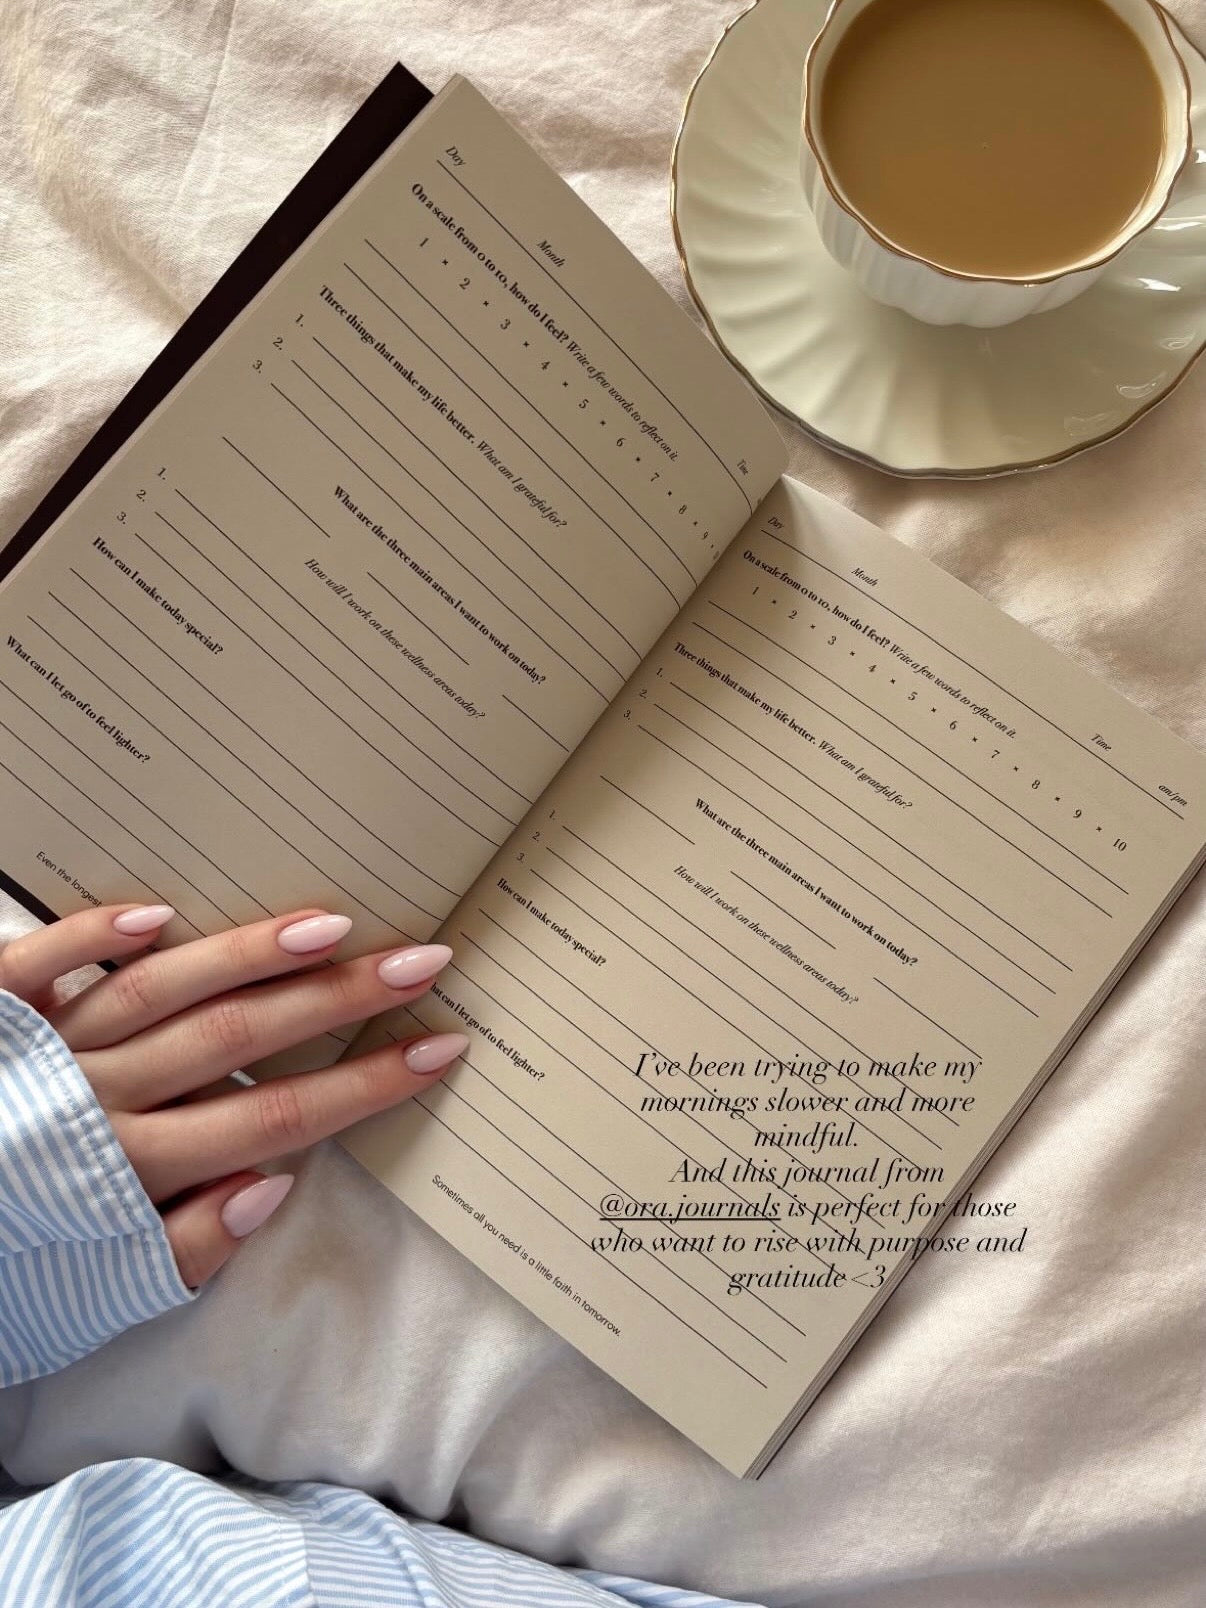 Day
Month
Time
On a scale from 0 to 10, how do I feel? Write a few words to reflect on it.
1 × 2 × 3 × 4 × 5 × 6 × 7 × 8 × 9 ×
Three things that make my life better. What am I grateful for?
1.
2.
3.
What are the three main areas I want to work on today?
How will I work on these wellness areas today?
1.
2.
3.
How can I make today special?
What can I let go of to feel lighter?
Even the longest
Day
Month
Time
am/pm
On a scale from 0 to 10, how do I feel? Write a few words to reflect on it.
1 × 2 × 3 × 4 × 5 × 6 × 7 × 8 × 9 × 10
Three things that make my life better. What am I grateful for?
1.
2.
3.
What are the three main areas I want to work on today?
How will I work on these wellness areas today?
1.
2.
3.
How can I make today special?
hat can I let go of to feel lighter?
Sometimes all you need is a little faith in tomorrow.
I've been trying to make my
mornings slower and more
mindful.
And this journal from
@ora.journals is perfect for those
who want to rise with purpose and
gratitude<3